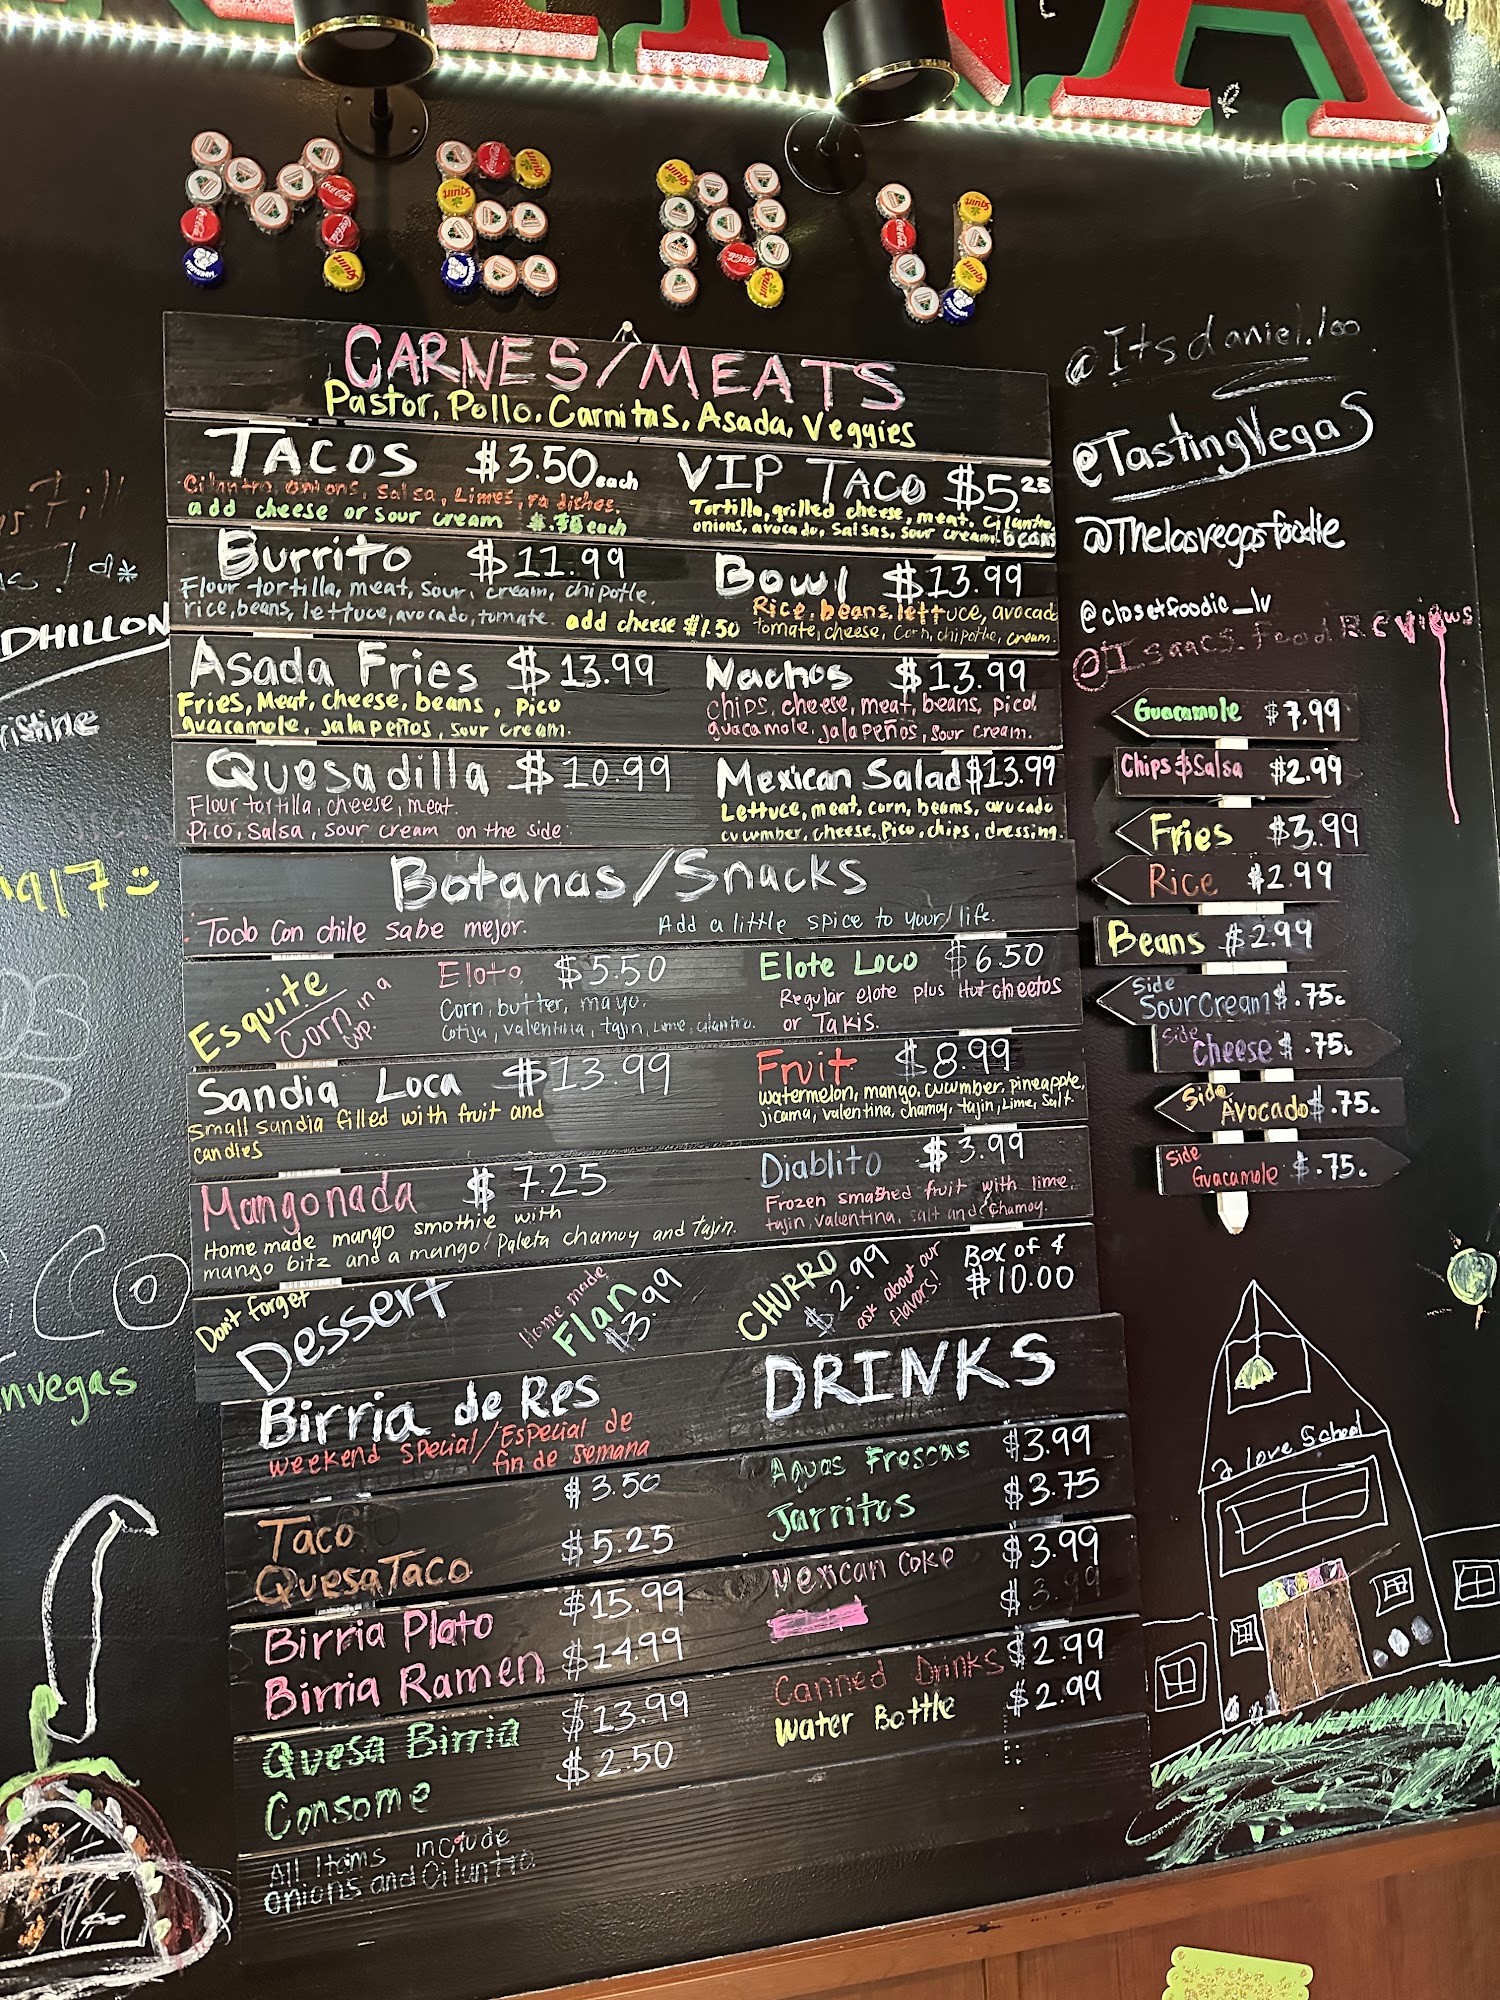 MENU
CARNES/MEATS
Pastor, Pollo, Carnitas, Asada, Veggies
TACOS $3.50 each
Cilantro onions, salsa, Limes, radishes.
add cheese or sour cream each
VIP TACO $5.25
Tortilla, grilled cheese, meat, cilantro,
onions, avocado, salsas, sour cream. beans
Burrito $11.99
Flour tortilla, meat, sour, cream, chipotle,
rice, beans, lettuce, avocado, tomate. add cheese $1.50
Bowl $13.99
Rice, beans, lettuce, avocado
tomate, cheese, Corn, chipotle, cream.
Asada Fries $13.99
Fries, Meat, cheese, beans, pico
guacamole, jalapeños, sour cream.
Nachos $13.99
Chips, cheese, meat, beans, pico,
guacamole, jalapeños, sour cream.
Quesadilla $10.99
Flour tortilla, cheese, meat.
Pico, Salsa, sour cream on the side.
Mexican Salad $13.99
Lettuce, meat, corn, beans, avocado
cucumber, cheese, Pico, chips, dressing.
Botanas/Snacks
Todo Con chile sabe mejor.
Add a little spice to your life.
Esquite
Corn in a
cup.
Elote $5.50
Corn, butter, mayo,
Cotija, valentina, tajin, Lime, cilantro.
Elote Loco $6.50
Regular elote plus Hot cheetos
or Takis.
Sandia Loca $13.99
small sandia filled with fruit and
candies
Fruit $8.99
watermelon, mango, cucumber, pineapple,
jicama, valentina, chamoy, tajin, Lime, Salt.
Mangonada $7.25
Home made mango smothie with
mango bitz and a mango Paleta chamoy and tajin.
Diablito $3.99
Frozen smashed fruit with lime,
tajin, valentina, salt and chamoy.
Don't forget
Dessert
Home made
Flan
$3.99
CHURRO
$2.99
ask about our
flavors!
Box of 4
$10.00
Birria de Res
weekend special/Especial de
fin de semana
Taco $3.50
QuesaTaco $5.25
Birria Plato $15.99
Birria Ramen $14.99
Quesa Birria $13.99
Consome $2.50
All Items include
onions and Cilantro.
DRINKS
Aguas Frescas $3.99
Jarritos $3.75
Mexican Coke $3.99
$3.99
Canned Drinks $2.99
Water Bottle $2.99
@Itsdaniel.loo
@TastingVegas
@Thelasvegasfoodie
@closetfoodie_lv
@Isaacs.Food Reviews
Guacamole $7.99
Chips $ Salsa $2.99
Fries $3.99
Rice $2.99
Beans $2.99
Side
Sour Cream $.75¢
Side
Cheese $.75¢
Side
Avocado $.75¢
Side
Guacamole $.75¢
DHILLON
ristine
nvegas